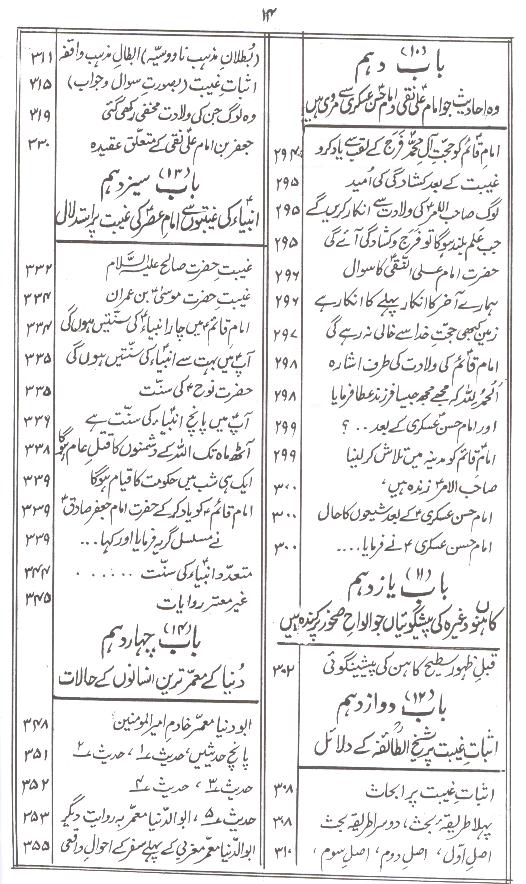 ۱۴
(۱۰)
باب دہم
وہ احادیث جو امام علی نقی و امام حسن عسکری سے مروی ہیں
امام قائمؑ کو حجت آل محمدؐ فرَج کے لقب سے یاد کرو ۲۹۴
غیبت کے بعد کشادگی کی اُمید ۲۹۵
لوگ صاحب الامرؑ کی ولادت سے انکار کریں گے ۲۹۵
جب عَلم بلند ہوگا تو فرَج و کشادگی آئے گی ۲۹۵
حضرت امام علی النقیؑ کا سوال ۲۹۶
ہمارے آخر کا انکار پہلے کا انکار ہے ۲۹۶
زمین کبھی حجتِ خدا سے خالی نہ رہے گی ۲۹۷
امام قائمؑ کی ولادت کی طرف اشارہ ۲۹۸
الحمدُ للہ کہ مجھے مجھ جیسا فرزند عطا فرمایا ۲۹۸
اور امام حسن عسکریؑ کے بعد . . ؟ ۲۹۹
امام قائمؑ کو مدینہ میں تلاش کر لینا ۲۹۹
صاحب الامرؑ زندہ ہیں، ۳۰۰
امام حسن عسکریؑ کے بعد شیعوں کا حال ۳۰۰
امام حسن عسکریؑ نے فرمایا.... ۳۰۰
(۱۱)
باب یازدہم
کاہنوں وغیرہ کی پیشگوئیاں جو الواح صخور پر کندہ ہیں
قبلِ ظہور سطیح کاہن کی پیشینگوئی ۳۰۲
(۱۲)
باب دوازدہم
اثباتِ غیبت پر شیخ الطائفہ کے دلائل
اثبات غیبت پر ابحاث ۳۰۸
پہلا طریقۂ بحث، دوسرا طریقۂ بحث ۳۰۸
اصل اوّل، اصل دوم، اصل سوم، ۳۱۰
(بُطلانِ مذہب ناووسیّہ) ابطالِ مذہب واقفہ ۳۱۱
اثبات غیبت (بصورت سوال و جواب) ۳۱۵
وہ لوگ جن کی ولادت مخفی رکھی گئی ۳۱۹
جعفر بن امام علی نقیؑ کے متعلق عقیدہ ۳۳۰
(۱۳)
باب سیزدہم
انبیاءؑ کی غیبتوں سے امام عصرؑ کی غیبت پر استدلال
غیبت حضرت صالح علیہ السلام ۳۳۲
غیبت حضرت موسیٰ بن عمران ۳۳۴
امام قائمؑ میں چار انبیاءؑ کی سنّتیں ہوں گی ۳۳۴
آپؑ میں بہت سے انبیاءؑ کی سنّتیں ہوں گی ۳۳۵
حضرت نوحؑ کی سنّت ۳۳۵
آپؑ میں پانچ انبیاءؑ کی سنّت ہے ۳۳۶
آٹھ ماہ تک اللہ کے دشمنوں کا قتلِ عام ہوگا ۳۳۸
ایک ہی شب میں حکومت کا قیام ہوگا ۳۳۹
امام قائمؑ کو یاد کر کے حضرت امام جعفر صادقؑ ۳۳۹
نے مسلسل گریہ فرمایا اور کہا.... ۳۳۹
متعدد انبیاءؑ کی سنّت . . . . . . ۳۴۴
غیر معتبر روایات ۳۴۵
(۱۴)
باب چہاردہم
دُنیا کے معمّر ترین انسانوں کے حالات
ابو دنیا معمر خادم امیر المومنین ۳۴۸
پانچ حدیثیں، حدیث ۱، حدیث ۲ ۳۵۱
حدیث ۳، حدیث ۴ ۳۵۲
حدیث ۵، ابو الدنیا معمر بہ روایت دیگر ۲۵۳
ابو الدنیا معمر مغربی کے پہلے سفر کے احوال واقعی ۳۵۵